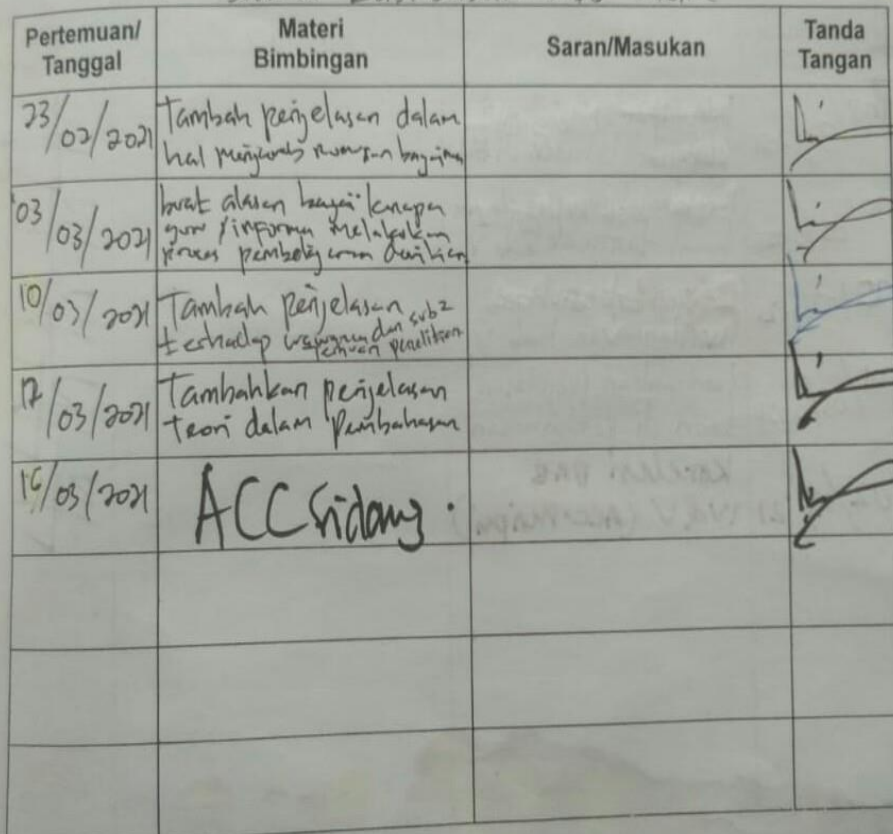 Pertemuan/
Tanggal
Materi
Bimbingan
Saran/Masukan
Tanda
Tangan
23/02/2021
Tambah penjelasan dalam
hal menjawab rumusan
03/03/2021
buat alasan kenapa
guru/informan melakukan
proses pembelajaran demikian
10/03/2021
Tambah penjelasan
terhadap dan sub2
temuan penelitian
/03/2021
Tambahkan penjelasan
teori dalam Pembahasan
/03/2021
ACC Sidang.